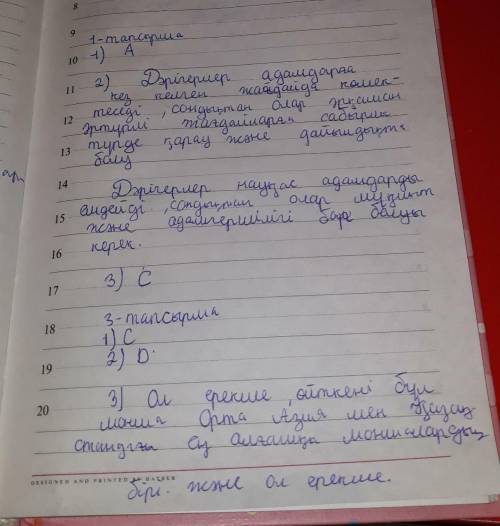 8
9
1-тапсырма
10 1) А
11 2) Дәрігерлер адамдарға
кез келген жағдайда көмек-
12 теседі, сондықтан олар
әртүрлі жағдайларға сабырлы
13 түрде қарау және дайындықта
болу
14 Дәрігерлер науқас адамдарды
емдейді, сондықтан олар мұқият
15 және адамгершілігі бар болуы
16 керек.
17 3) С
18 3-тапсырма
1) С
19 2) D.
20 3) Ол ерекше, өйткені бұл
монша Орта Азия мен Қазақ
стандағы ең алғашқы моншалардың
DESIGNED AND PRINTED BY
бірі. және ол ерекше.